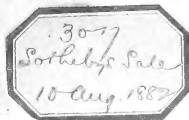 3017
Sotheby's Sale
10 Aug. 1882